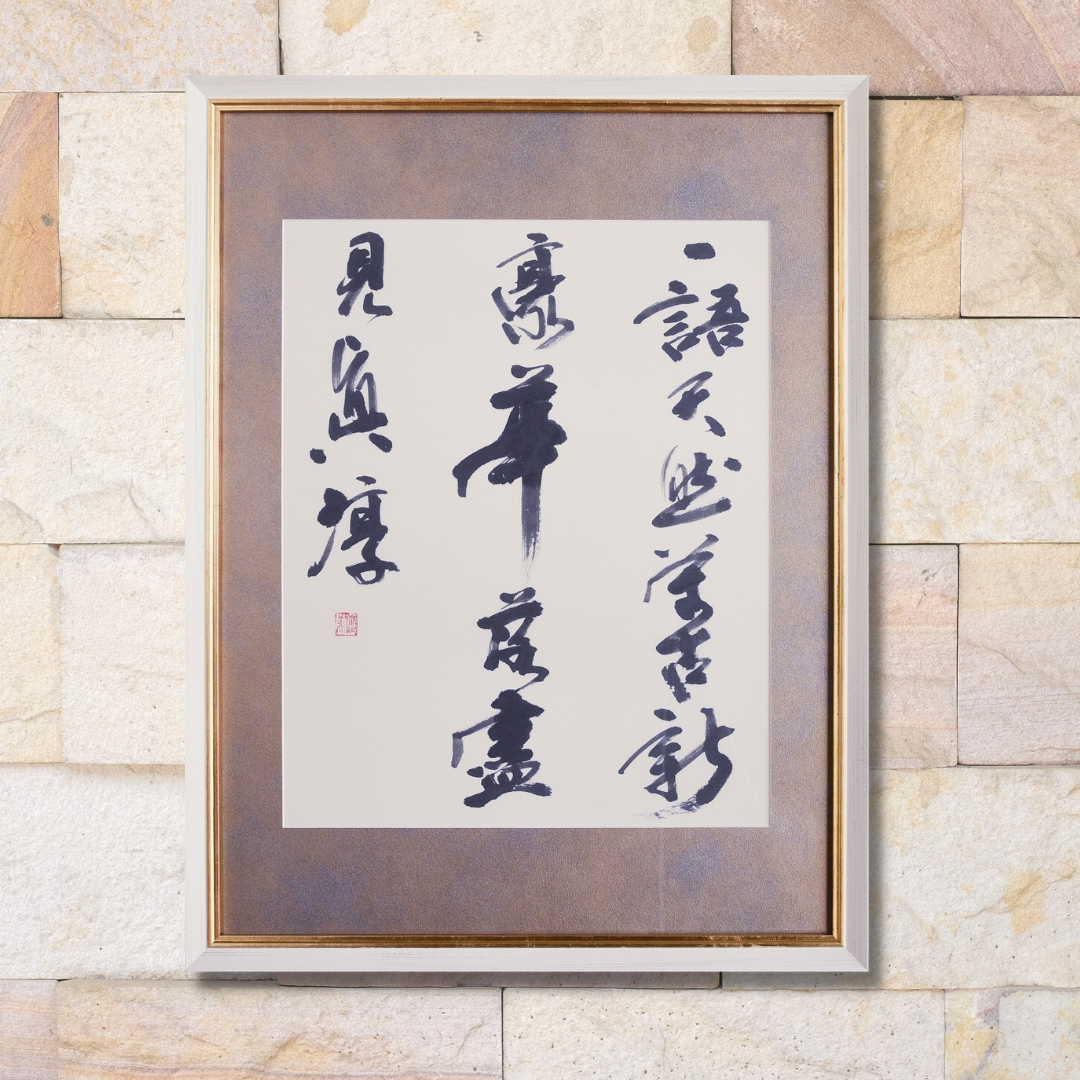 一語天然萬古新
豪華落盡
見真淳